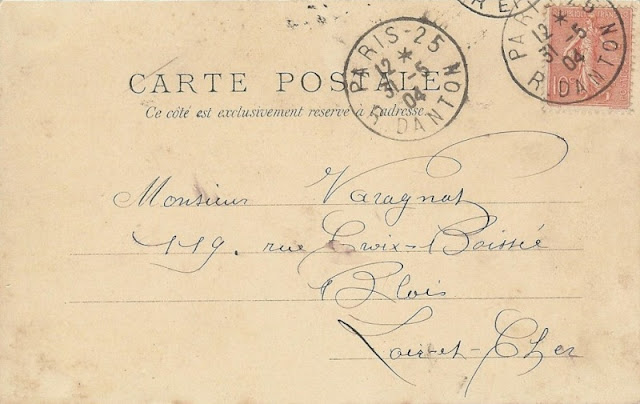 PARIS-25
12 * 31-5 04
R DANTON
PARIS-25
12 * 31-5 04
R DANTON
CARTE POSTALE
Ce côté est exclusivement reservé à l'adresse
Monsieur Varagnat
119, rue Croix-Boissée
Blois
Loir-et-Cher